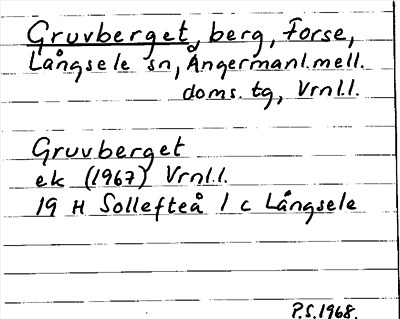 Gruvberget, berg, Forse,
Långsele sn, Ångermanl. mell.
doms. tg, Vrnl.l.
Gruvberget
ek (1967) Vrnl.l.
19 H Sollefteå 1 c Långsele
P.S. 1968.